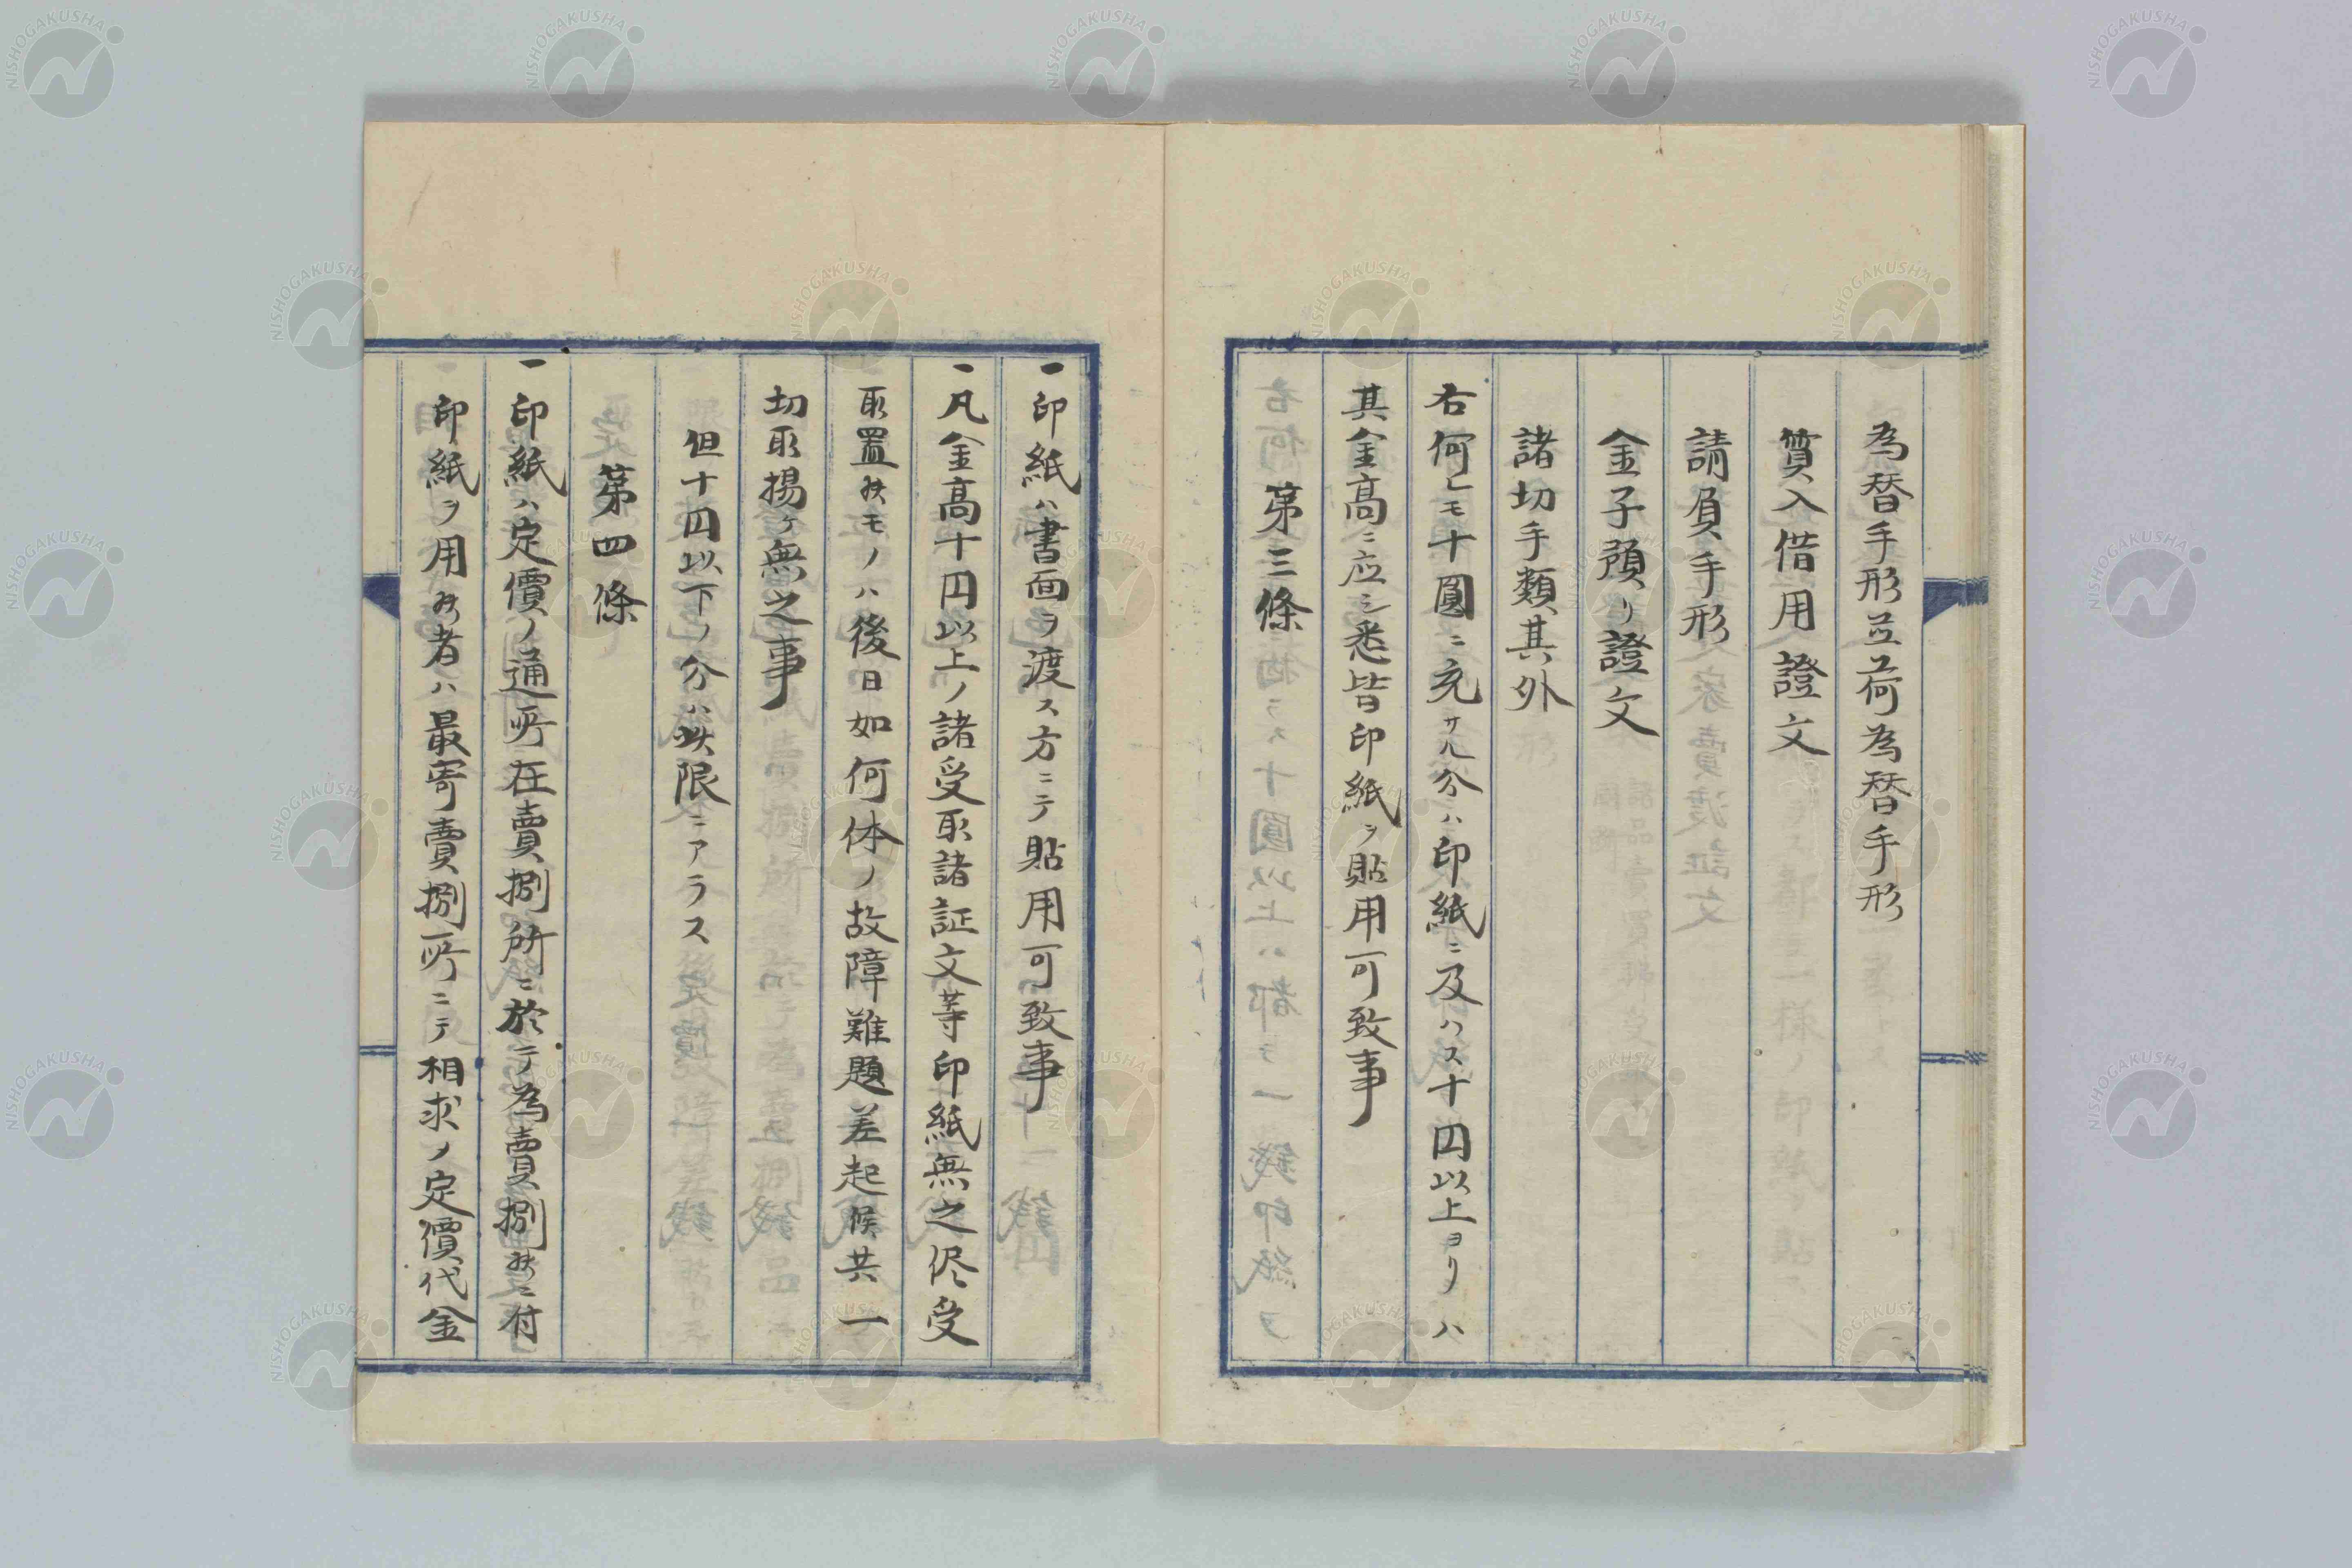 為替手形並荷為替手形
質入借用證文
請負手形
金子預リ證文
諸切手類其外
右何レモ十圓ニ充サル分ハ印紙ニ及ハス十円以上ヨリハ
其金高ニ応シ悉皆印紙ヲ貼用可致事
第三條
一印紙ハ書面ヲ渡ス方ニテ貼用可致事
一凡金高十円以上ノ諸受取諸証文等印紙無之侭受
取置候モノハ後日如何体ノ故障難題差起候共一
切取揚ケ無之事
但十円以下ノ分ハ此限ニアラス
第四條
一印紙ハ定價ノ通所在賣捌所ニ於テ為賣捌候ニ付
印紙ヲ用候者ハ最寄賣捌所ニテ相求ノ定價代金
NISHOGAKUSHA